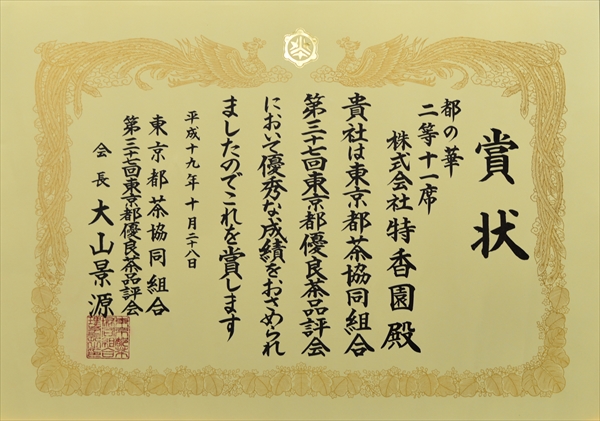 賞状
都の華
二等十一席
株式会社特香園殿
貴社は東京都茶協同組合
第三十七回東京都優良茶品評会
において優秀な成績をおさめられ
ましたのでこれを賞します
平成十九年十月二十八日
東京都茶協同組合
第三十七回東京都優良茶品評会
会長 大山景源